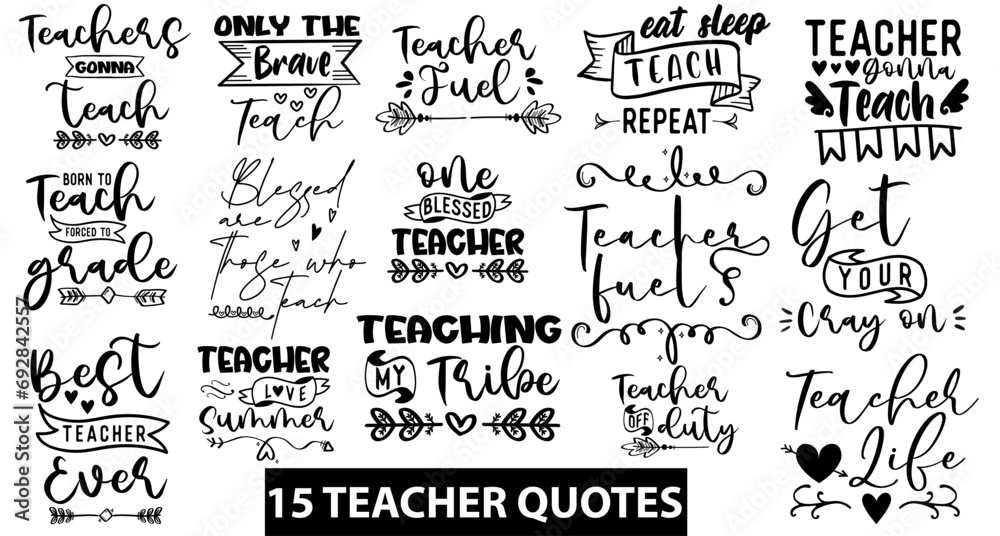 Teachers
GONNA
teach
BORN TO
Teach
FORCED TO
grade
Best
TEACHER
Ever
ONLY THE
Brave
Teach
Blessed
are
those who
Teach
TEACHER
LOVE
Summer
Teacher
Fuel
one
BLESSED
TEACHER
TEACHING
MY
Tribe
eat sleep
TEACH
REPEAT
Teacher
fuel
Teacher
OFF
duty
TEACHER
gonna
Teach
Get
YOUR
Cray on
Teacher
Life
15 TEACHER QUOTES
Adobe Stock | #692842557